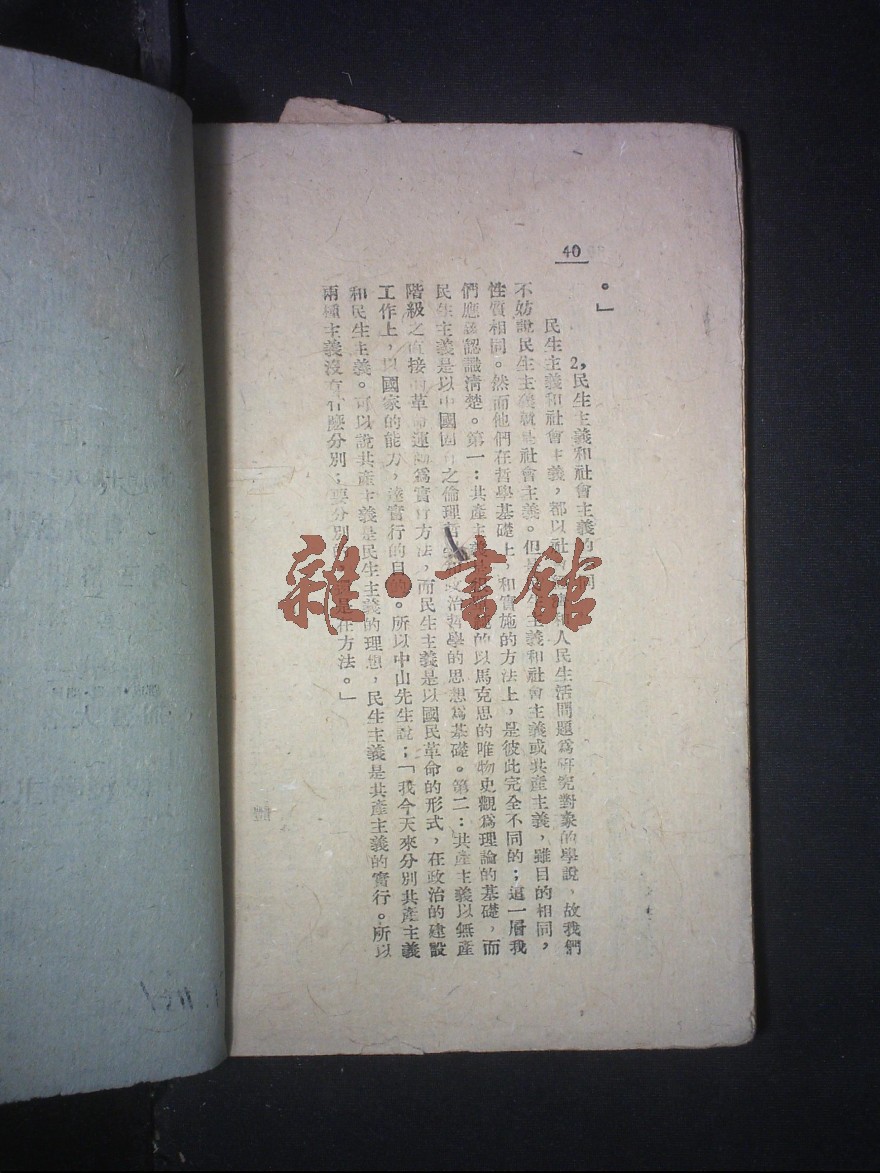 40
。」
2,民生主義和社會主義的
民生主義和社會主義，都以社 人民生活問題爲研究對象的學說，故我們
不妨說民生主義就是社會主義。但是民生主義和社會主義或共產主義，雖目的相同，
性質相同。然而他們在哲學基礎上，和實施的方法上，是彼此完全不同的；這一層我
們應該認識清楚。第一：共產主義 的以馬克思的唯物史觀爲理論的基礎，而
民生主義是以中國固有之倫理 政治哲學的思想爲基礎。第二：共產主義以無產
階級之直接的革命運動爲實行方法，而民生主義是以國民革命的形式，在政治的建設
工作上，以國家的能力，達實行的目的。所以中山先生說；「我今天來分別共產主義
和民生主義。可以說共產主義是民生主義的理想，民生主義是共產主義的實行。所以
兩種主義沒有什麼分別；要分別的 是在方法。」
雜·書館